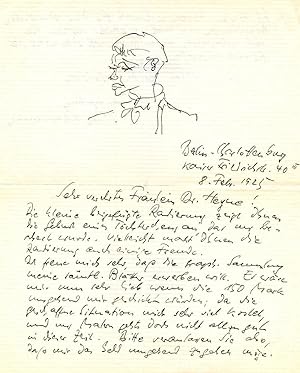 Berlin-Charlottenburg
Kaiser Friedrichstr. 40
8. Feb. 1925
Sehr verehrtes Fräulein Dr. Heyne!
Die kleine beigefügte Radierung zeigt Ihnen
die Geburt eines Töchterchens an das mir be-
schert wurde. Vielleicht macht Ihnen die
Radierung auch eine Freude.
Ich freue mich sehr daß die graph. Sammlung
meine Blätter erwerben will. Es wäre
mir nun sehr lieb wenn die 150 Mark
umgehend mir geschickt würden, da die
Situation mich sehr viel kostet,
und uns Malern geht's doch nicht allzu gut
in dieser Zeit. Bitte veranlassen Sie also,
daß mir das Geld umgehend zugehen möge.